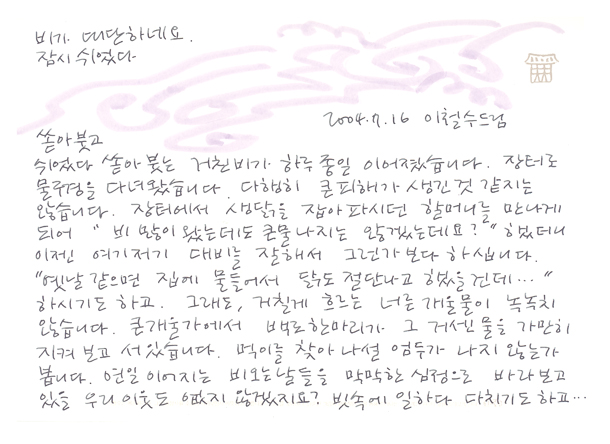 비가 대단하네요.
잠시 쉬었다
2004.7.16 이철수드림
쏟아붓고
쉬었다 쏟아붓는 거친비가 하루종일 이어졌습니다. 장터로
물구경을 다녀왔습니다. 다행히 큰피해가 생긴것 같지는
않습니다. 장터에서 생닭을 잡아파시던 할머니를 만나게
되어 "비 많이 왔는데도 큰물 나지는 않겠는데요?" 했더니
이젠 여기저기 대비를 잘해서 그런가보다 하십니다.
"옛날 같으면 집에 물들어서 닭도 절단나고 했을건데..."
하시기도 하고. 그래도, 거칠게 흐르는 너른개울물이 녹녹치
않습니다. 큰개울가에서 백로한마리가 그 거센물을 가만히
지켜보고 서있습니다. 먹이를 찾아나설 엄두가 나지 않는가
봅니다. 연일이어지는 비오는날들을 막막한 심정으로 바라보고
있을 우리이웃도 없지 않겠지요? 빗속에 일하다 다치기도 하고...